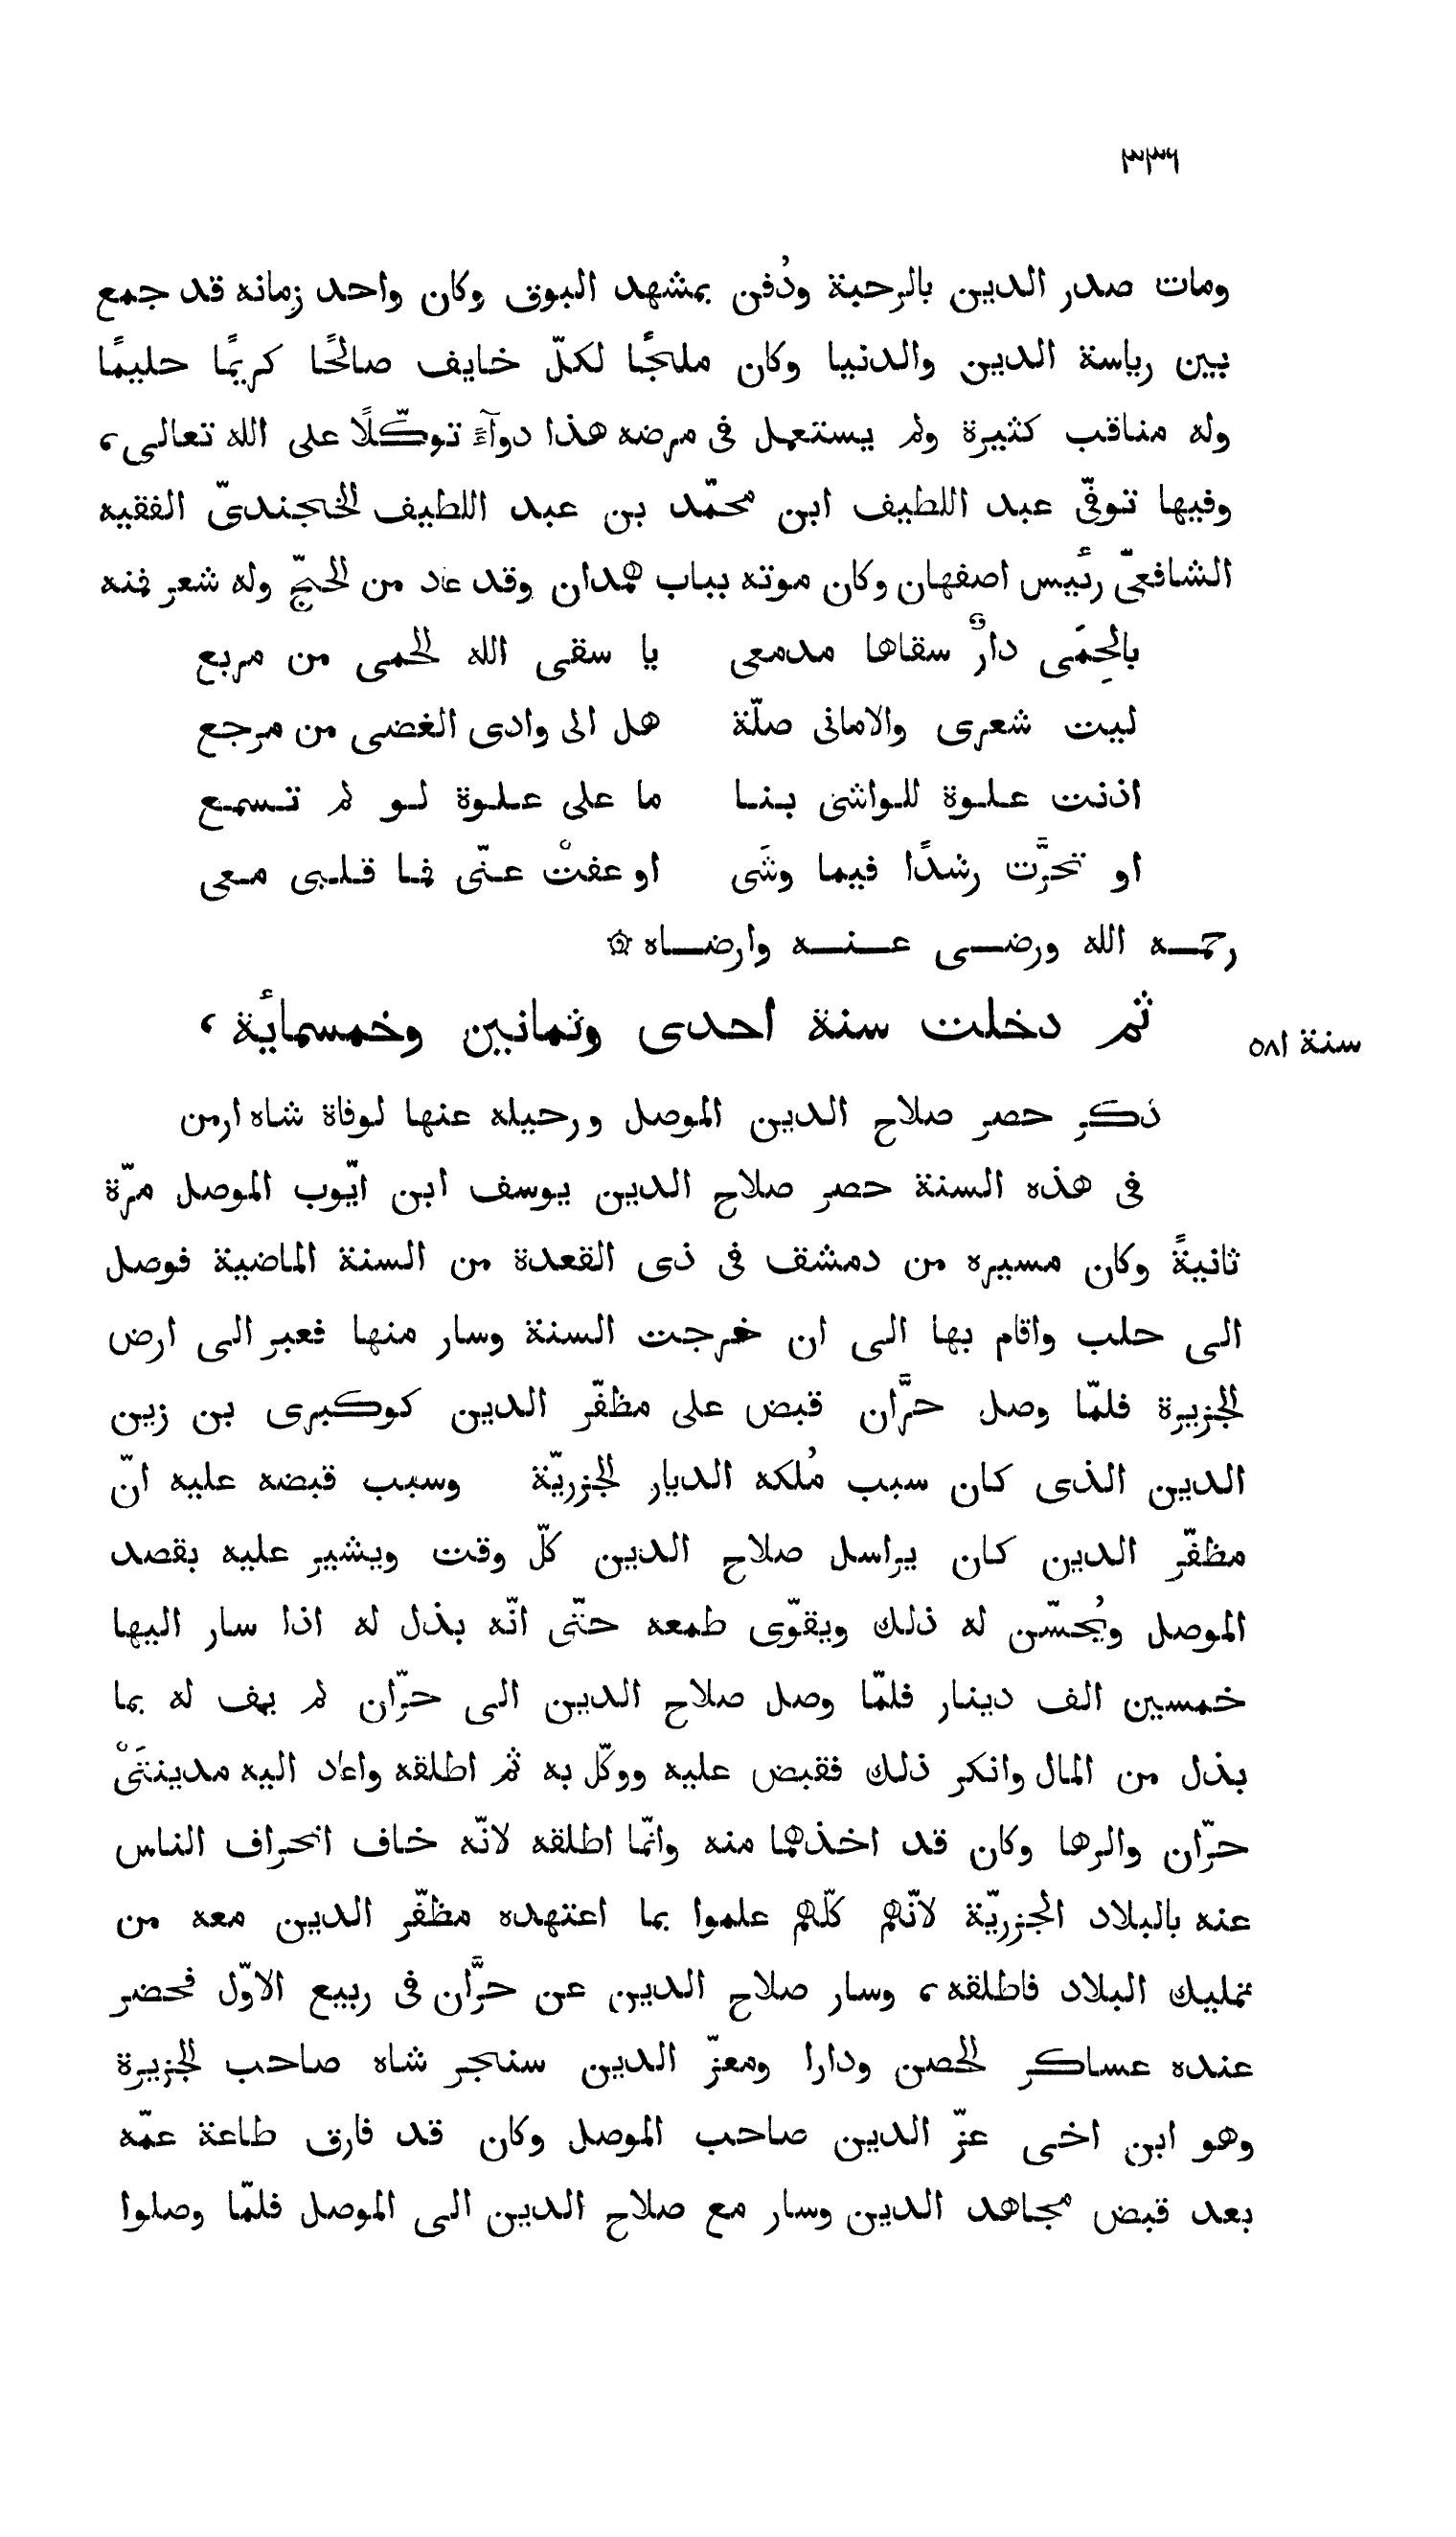 ٣٣٦
ومات صدر الدين بالرحبة ودُفن بمشهد البوق وكان واحد زمانه قد جمع
بين رياسة الدين والدنيا وكان ملجًأ لكلّ خايف صالحًا كريمًا حليمًا
وله مناقب كثيرة ولم يستعمل فى مرضه هذا دوآءً توكّلًا على الله تعالى،
وفيها توفّى عبد اللطيف ابن محمّد بن عبد اللطيف الخجندىّ الفقيه
الشافعىّ رئيس اصفهان وكان موته بباب همدان وقد عاد من الحجّ وله شعر فمنه
بالحِمَى دارٌ سقاها مدمعى يا سقى الله الحمى من مربع
ليت شعرى والامانى صلّة هل الى وادى الغضى من مرجع
اذنت علوة للواشى بنا ما على علوة لو لم تسمع
او تحرَّت رشدًا فيما وشَى او عفتْ عنّى فما قلبى معى
رحمه الله ورضى عنه وارضاه ۞
ثم دخلت سنة احدى وثمانين وخمسمائة،
سنة ٥٨١
ذكر حصر صلاح الدين الموصل ورحيله عنها لوفاة شاه ارمن
فى هذه السنة حصر صلاح الدين يوسف ابن ايّوب الموصل مرّة
ثانيةً وكان مسيره من دمشق فى ذى القعدة من السنة الماضية فوصل
الى حلب واقام بها الى ان خرجت السنة وسار منها فعبر الى ارض
الجزيرة فلمّا وصل حرَّان قبض على مظفّر الدين كوكبرى بن زين
الدين الذى كان سبب مُلكه الديار الجزريّة وسبب قبضه عليه انّ
مظفّر الدين كان يراسل صلاح الدين كلّ وقت ويشير عليه بقصد
الموصل ويُحسّن له ذلك ويقوّى طمعه حتّى انّه بذل له اذا سار اليها
خمسين الف دينار فلمّا وصل صلاح الدين الى حرّان لم يف له بما
بذل من المال وانكر ذلك فقبض عليه ووكّل به ثم اطلقه واعاد اليه مدينتَىْ
حرّان والرها وكان قد اخذهما منه وانّما اطلقه لانّه خاف انحراف الناس
عنه بالبلاد الجزريّة لانّهم كلّهم علموا بما اعتهده مظفّر الدين معه من
تمليك البلاد فاطلقه، وسار صلاح الدين عن حرَّان فى ربيع الاوّل فحضر
عنده عساكر الحصن ودارا ومعزّ الدين سنجر شاه صاحب الجزيرة
وهو ابن اخى عزّ الدين صاحب الموصل وكان قد فارق طاعة عمّه
بعد قبض مجاهد الدين وسار مع صلاح الدين الى الموصل فلمّا وصلوا